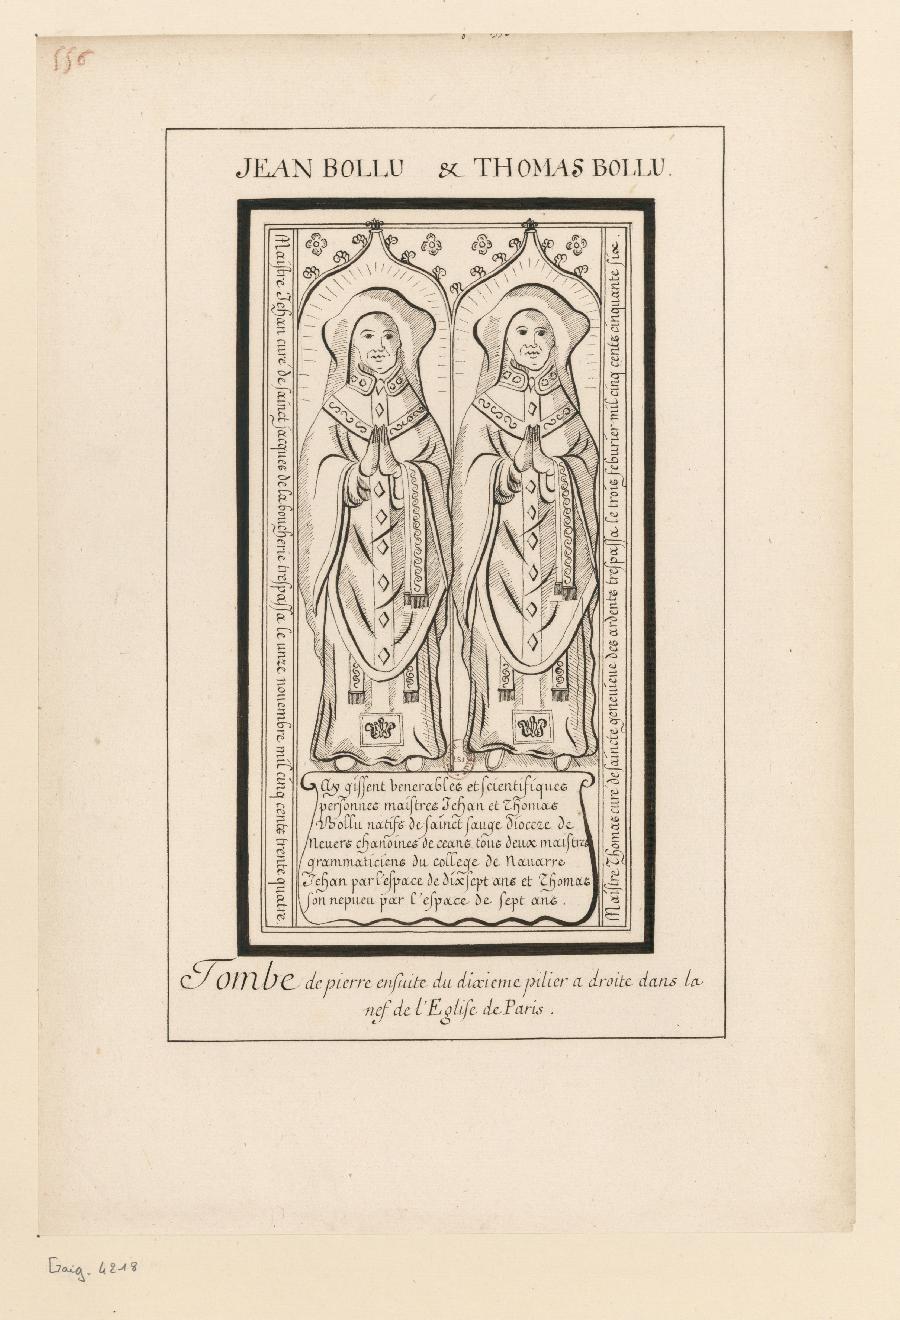 556
JEAN BOLLU & THOMAS BOLLU.
Maistre Jehan curé de sainct jacques de la boucherie trespassa le unze nouembre mil cinq cents trente quatre.
Maistre Thomas cure de saincte geneuieue des ardents trespassa le trois feburier mil cinq cents cinquante six.
Cy gissent venerables et scientifiques
personnes maistres Jehan et Thomas
Bollu natifs de sainct sauge dioceze de
Neuers chanoines de ceans, tous deux maistres
grammaticiens du college de Nauarre
Jehan par l'espace de dix sept ans et Thomas
son nepueu par l'espace de sept ans.
Tombe de pierre ensuite du dixieme pilier a droite dans la
nef de l'Eglise de Paris.
Gaig. 4218